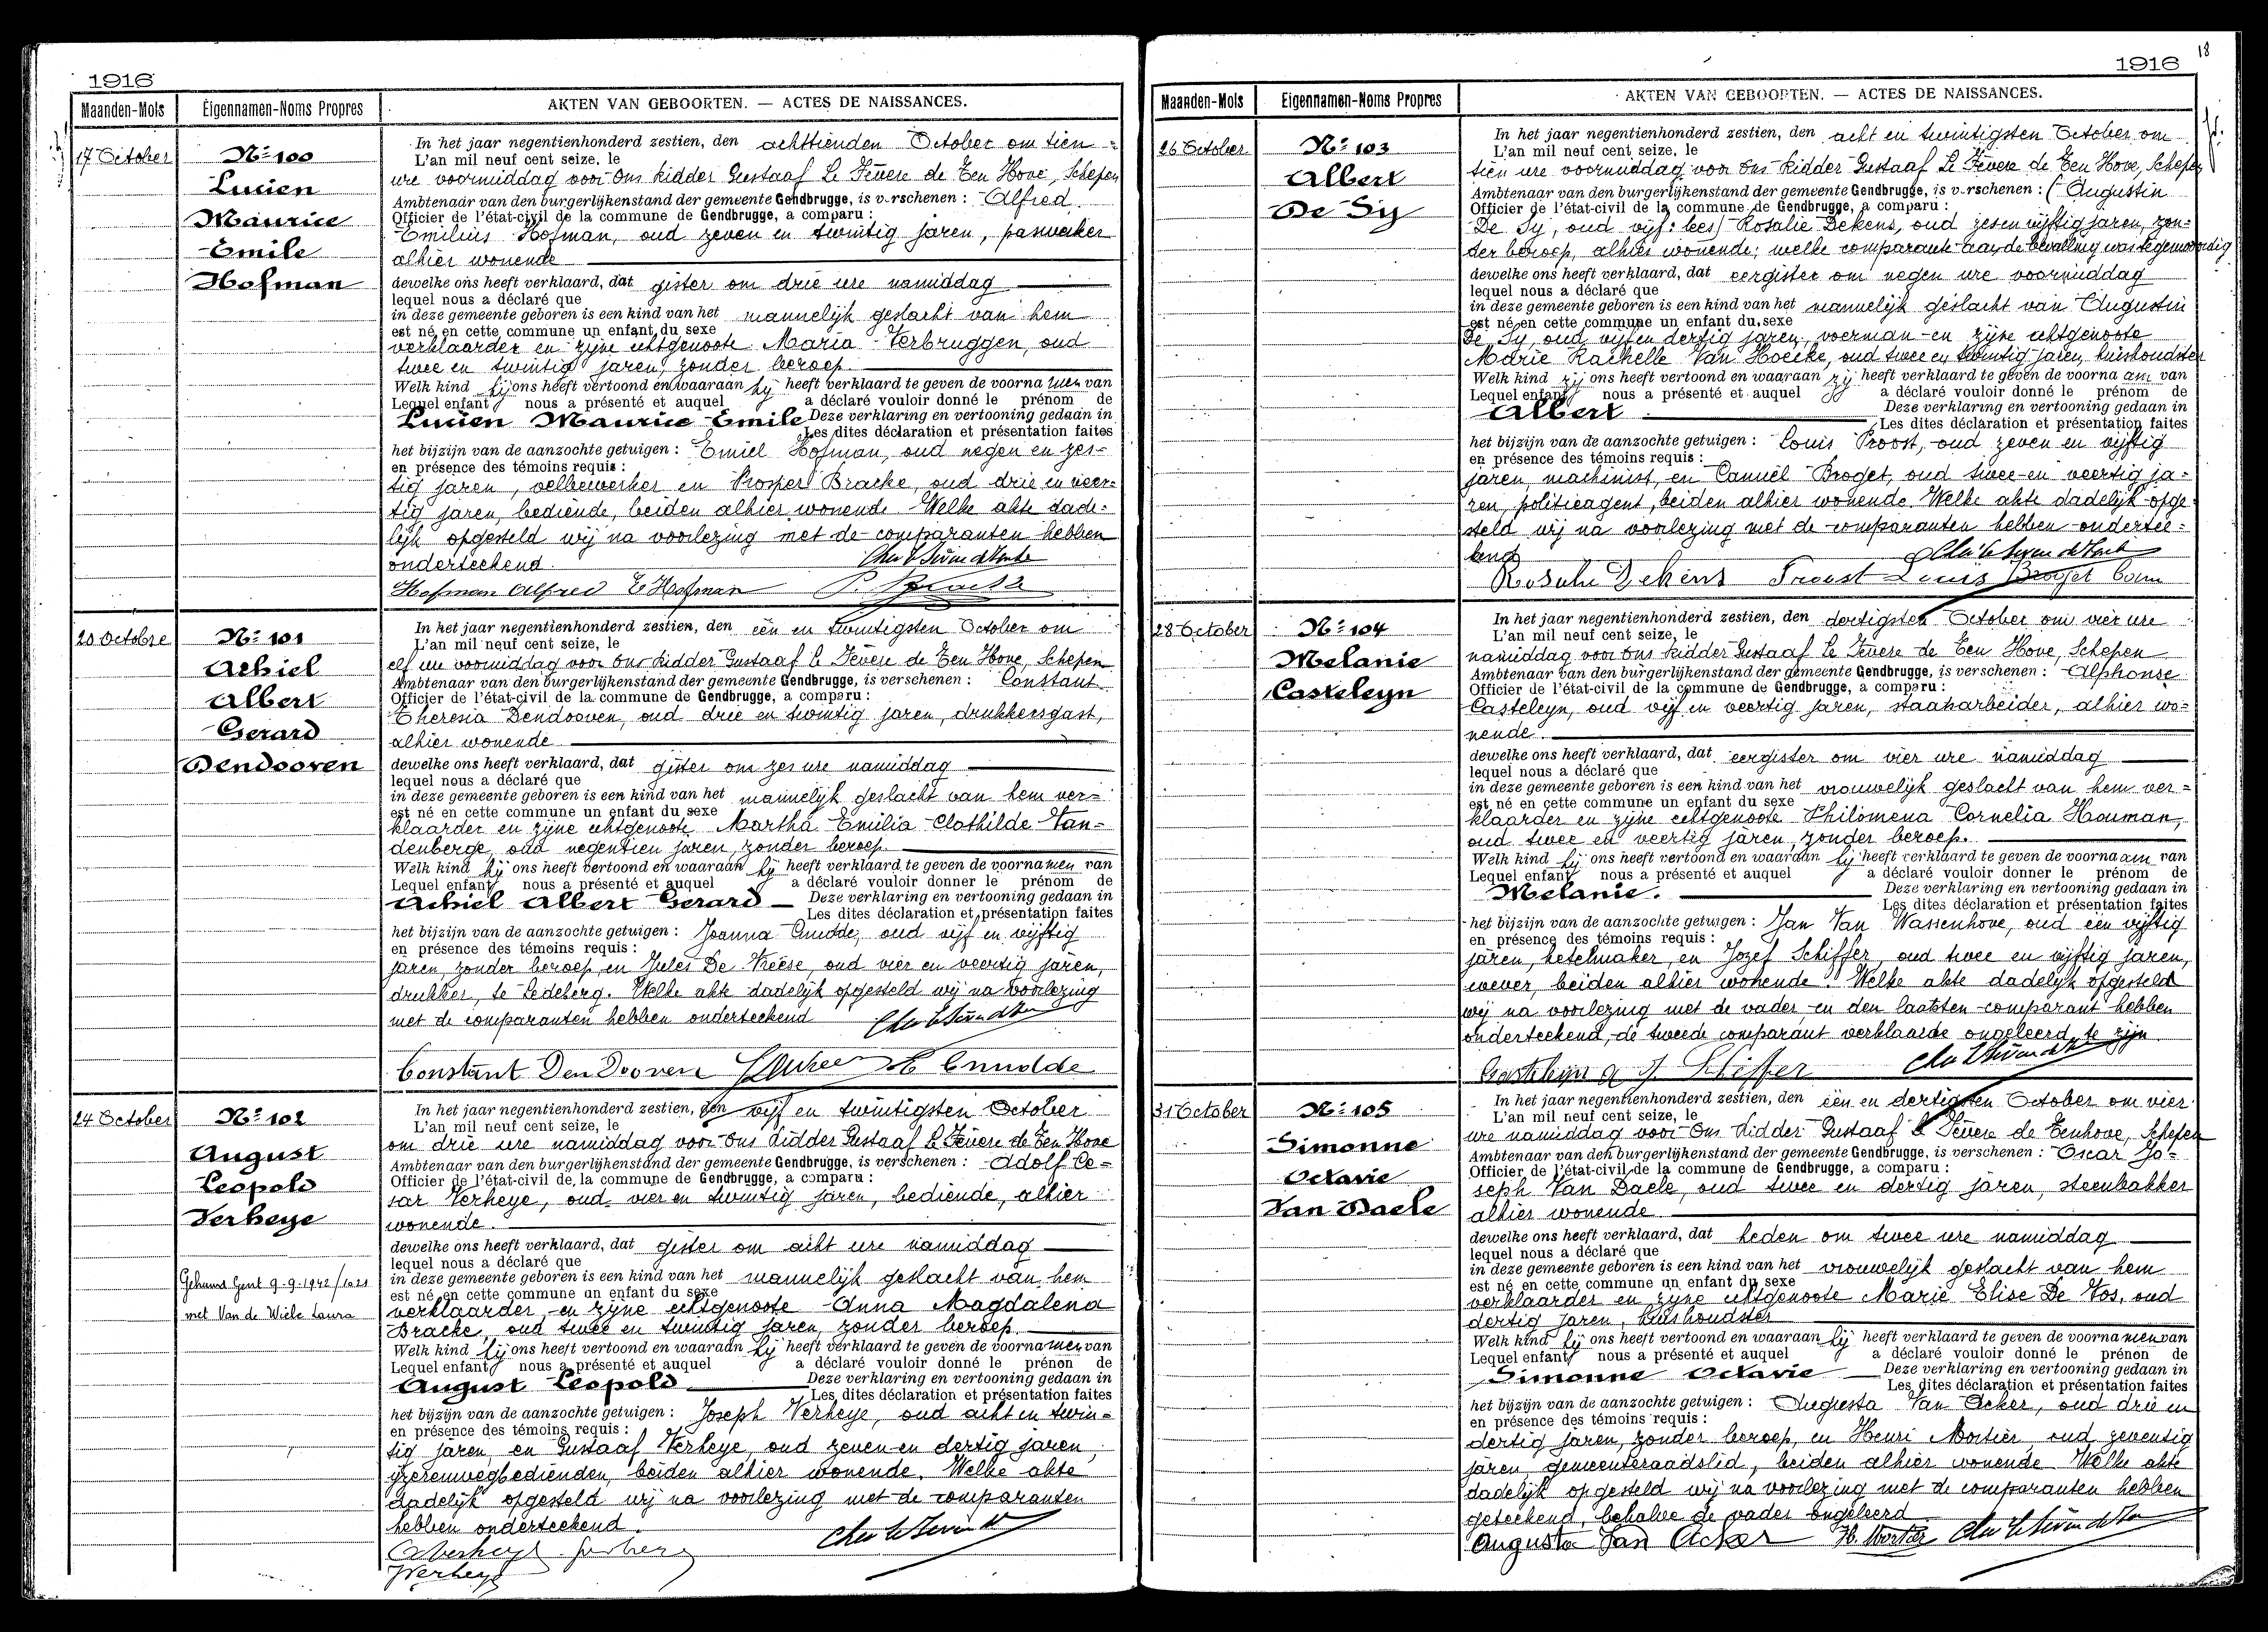 1916
Maanden-Mois
Eigennamen-Noms Propres
AKTEN VAN GEBOORTEN. — ACTES DE NAISSANCES.
17 October
Nº 100
Lucien
Maurice
Emile
Hofman
In het jaar negentienhonderd zestien, den achttienden October om tien
L'an mil neuf cent seize, le
ure voormiddag voor Ons Ridder Gustaaf Le Fèvere de Ten Hove, Schepen
Ambtenaar van den burgerlijkenstand der gemeente Gendbrugge, is v-rschenen : Alfred
Officier de l'état-civil de la commune de Gendbrugge, a comparu :
Emilius Hofman, oud zeven en twintig jaren, paswerker
alhier wonende
dewelke ons heeft verklaard, dat gister om drie ure namiddag
lequel nous a déclaré que
in deze gemeente geboren is een kind van het mannelijk geslacht van hem
est né en cette commune un enfant du sexe
verklaarder en zijne echtgenoote Maria Verbruggen, oud
twee en twintig jaren, zonder beroep
Welk kind hij ons heeft vertoond en waaraan hij heeft verklaard te geven de voorna men van
Lequel enfant nous a présenté et auquel a déclaré vouloir donné le prénom de
Lucien Maurice Emile Deze verklaring en vertooning gedaan in
Les dites déclaration et présentation faites
het bijzijn van de aanzochte getuigen : Emiel Hofman, oud negen en zes-
en présence des témoins requis :
tig jaren, velbewerker en Prosper Bracke, oud drie en veer-
tig jaren, bediende, beiden alhier wonende. Welke akte dade-
lijk opgesteld wij na voorlezing met de comparanten hebben
onderteekend.
Hofman Alfred E Hofman P. Bracke
20 Octobre
Nº 101
Achiel
Albert
Gerard
Dendooven
In het jaar negentienhonderd zestien, den één en twintigsten October om
L'an mil neuf cent seize, le
elf ure voormiddag voor Ons Ridder Gustaaf Le Fèvere de Ten Hove, Schepen
Ambtenaar van den burgerlijkenstand der gemeente Gendbrugge, is verschenen : Constant
Officier de l'état-civil de la commune de Gendbrugge, a comparu :
Theresia Dendooven, oud drie en twintig jaren, drukkersgast,
alhier wonende
dewelke ons heeft verklaard, dat gister om zes ure namiddag
lequel nous a déclaré que
in deze gemeente geboren is een kind van het mannelijk geslacht van hem ver-
est né en cette commune un enfant du sexe
klaarder en zijne echtgenoote Martha Emilia Clothilde Van-
denberge, oud negentien jaren, zonder beroep.
Welk kind hij ons heeft vertoond en waaraan hij heeft verklaard te geven de voorna men van
Lequel enfant nous a présenté et auquel a déclaré vouloir donner le prénom de
Achiel Albert Gerard Deze verklaring en vertooning gedaan in
Les dites déclaration et présentation faites
het bijzijn van de aanzochte getuigen : Joanna Cnudde, oud vijf en vijftig
en présence des témoins requis :
jaren, zonder beroep, en Jules De Vreese, oud vier en veertig jaren,
drukker, te Ledeberg. Welke akte dadelijk opgesteld wij na voorlezing
met de comparanten hebben onderteekend
Constant Den Dooven Cnudde
24 October
Nº 102
August
Leopold
Verheye
Gehuwd Gent 9-9-1942/1021
met Van de Wiele Laura
In het jaar negentienhonderd zestien, den vijf en twintigsten October
L'an mil neuf cent seize, le
om drie ure namiddag voor Ons Ridder Gustaaf Le Fèvere de Ten Hove
Ambtenaar van den burgerlijkenstand der gemeente Gendbrugge, is verschenen : Adolf Ce-
Officier de l'état-civil de la commune de Gendbrugge, a comparu :
sar Verheye, oud vier en twintig jaren, bediende, alhier
wonende.
dewelke ons heeft verklaard, dat gister om acht ure namiddag
lequel nous a déclaré que
in deze gemeente geboren is een kind van het mannelijk geslacht van hem
est né en cette commune un enfant du sexe
verklaarder en zijne echtgenoote Anna Magdalena
Bracke, oud twee en twintig jaren, zonder beroep.
Welk kind hij ons heeft vertoond en waaraan hij heeft verklaard te geven de voorna men van
Lequel enfant nous a présenté et auquel a déclaré vouloir donné le prénon de
August Leopold Deze verklaring en vertooning gedaan in
Les dites déclaration et présentation faites
het bijzijn van de aanzochte getuigen : Joseph Verheye, oud acht en twin-
en présence des témoins requis :
tig jaren, en Gustaaf Verheye, oud zeven en dertig jaren,
ijzerenwegbedienden, beiden alhier wonende. Welke akte
dadelijk opgesteld wij na voorlezing met de comparanten
hebben onderteekend.
Verheye
18
1916
Maanden-Mois
Eigennamen-Noms Propres
AKTEN VAN GEBOORTEN. — ACTES DE NAISSANCES.
26 October
Nº 103
Albert
De Sy
In het jaar negentienhonderd zestien, den acht en twintigsten October om
L'an mil neuf cent seize, le
tien ure voormiddag voor Ons Ridder Gustaaf Le Fèvere de Ten Hove, Schepen
Ambtenaar van den burgerlijkenstand der gemeente Gendbrugge, is v-rschenen : (Augustin
Officier de l'état-civil de la commune de Gendbrugge, a comparu :
De Sy, oud vijf: lees) Rosalie Dekens, oud zes en vijftig jaren, zon-
der beroep, alhier wonende; welke comparante aan de bevalling was tegenwoordig
dewelke ons heeft verklaard, dat eergister om negen ure voormiddag
lequel nous a déclaré que
in deze gemeente geboren is een kind van het mannelijk geslacht van Augustin
est né en cette commune un enfant du sexe
De Sy, oud vijf en dertig jaren, voerman en zijne echtgenoote
Marie Rachelle Van Hoecke, oud twee en twintig jaren, huishoudster
Welk kind zij ons heeft vertoond en waaraan zij heeft verklaard te geven de voorna am van
Lequel enfant nous a présenté et auquel a déclaré vouloir donné le prénom de
Albert Deze verklaring en vertooning gedaan in
Les dites déclaration et présentation faites
het bijzijn van de aanzochte getuigen : Louis Proost, oud zeven en vijftig
en présence des témoins requis :
jaren, machinist, en Camiel Broget, oud twee en veertig ja-
ren, politieagent, beiden alhier wonende. Welke akte dadelijk opge-
steld wij na voorlezing met de comparanten hebben ondertee-
kend
Rosalie Dekens Proost Louis Broget Cam
28 October
Nº 104
Melanie
Casteleyn
In het jaar negentienhonderd zestien, den dertigsten October om vier ure
L'an mil neuf cent seize, le
namiddag voor Ons Ridder Gustaaf Le Fèvere de Ten Hove, Schepen
Ambtenaar van den burgerlijkenstand der gemeente Gendbrugge, is verschenen : Alphonse
Officier de l'état-civil de la commune de Gendbrugge, a comparu :
Casteleyn, oud vijf en veertig jaren, staatsarbeider, alhier wo-
nende.
dewelke ons heeft verklaard, dat eergister om vier ure namiddag
lequel nous a déclaré que
in deze gemeente geboren is een kind van het vrouwelijk geslacht van hem ver-
est né en cette commune un enfant du sexe
klaarder en zijne echtgenoote Philomena Cornelia Houman,
oud twee en veertig jaren, zonder beroep.
Welk kind hij ons heeft vertoond en waaraan hij heeft verklaard te geven de voorna am van
Lequel enfant nous a présenté et auquel a déclaré vouloir donner le prénom de
Melanie. Deze verklaring en vertooning gedaan in
Les dites déclaration et présentation faites
het bijzijn van de aanzochte getuigen : Jan Van Wassenhove, oud één vijftig
en présence des témoins requis :
jaren, ketelmaker, en Jozef Schiffer, oud twee en vijftig jaren,
wever, beiden alhier wonende. Welke akte dadelijk opgesteld
wij na voorlezing met de vader en den laatsten comparant hebben
onderteekend, de tweede comparant verklaarde ongeleerd te zijn
Casteleyn A J. Schiffer
31 October
Nº 105
Simonne
Octavie
Van Daele
In het jaar negentienhonderd zestien, den één en dertigsten October om vier
L'an mil neuf cent seize, le
ure namiddag voor Ons Ridder Gustaaf Le Fèvere de Tenhove, Schepen
Ambtenaar van den burgerlijkenstand der gemeente Gendbrugge, is verschenen : Oscar Jo-
Officier de l'état-civil de la commune de Gendbrugge, a comparu :
seph Van Daele, oud twee en dertig jaren, steenbakker
alhier wonende
dewelke ons heeft verklaard, dat heden om twee ure namiddag
lequel nous a déclaré que
in deze gemeente geboren is een kind van het vrouwelijk geslacht van hem
est né en cette commune un enfant du sexe
verklaarder en zijne echtgenoote Marie Elise De Vos, oud
dertig jaren, huishoudster
Welk kind hij ons heeft vertoond en waaraan hij heeft verklaard te geven de voorna men van
Lequel enfant nous a présenté et auquel a déclaré vouloir donné le prénon de
Simonne Octavie Deze verklaring en vertooning gedaan in
Les dites déclaration et présentation faites
het bijzijn van de aanzochte getuigen : Augusta Van Acker, oud drie en
en présence des témoins requis :
dertig jaren, zonder beroep, en Henri Mortier, oud zeventig
jaren, gemeenteraadslid, beiden alhier wonende. Welke akte
dadelijk opgesteld wij na voorlezing met de comparanten hebben
geteekend, behalve de vader ongeleerd
Augusta Van Acker H. Mortier